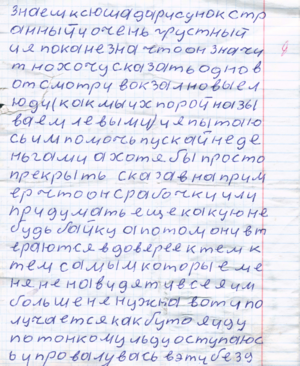 знаемксюшадарисунокстр
анныйиоченьгрустный
ияпоканезначтоонзначи
тнохочусказатьоднов
отсмотривокзалновыел
юди(какмыихпоройназы
ваемлевыми)ияпытаю
сьимпомочьпускайнеде
ньгамиахотябыпросто
прекрытьсказавнаприм
ерчтоонсрабочкиили
придуматьещекакуюне
будьбайкуапотомонивт
ераютсявдовереектемк
темсамымкоторыеме
няненавидятивсеяим
большененужнавотипо
лучаетсякакбутояиду
потонкомульдуоступаюс
ьипровалуваcьвэтубезд